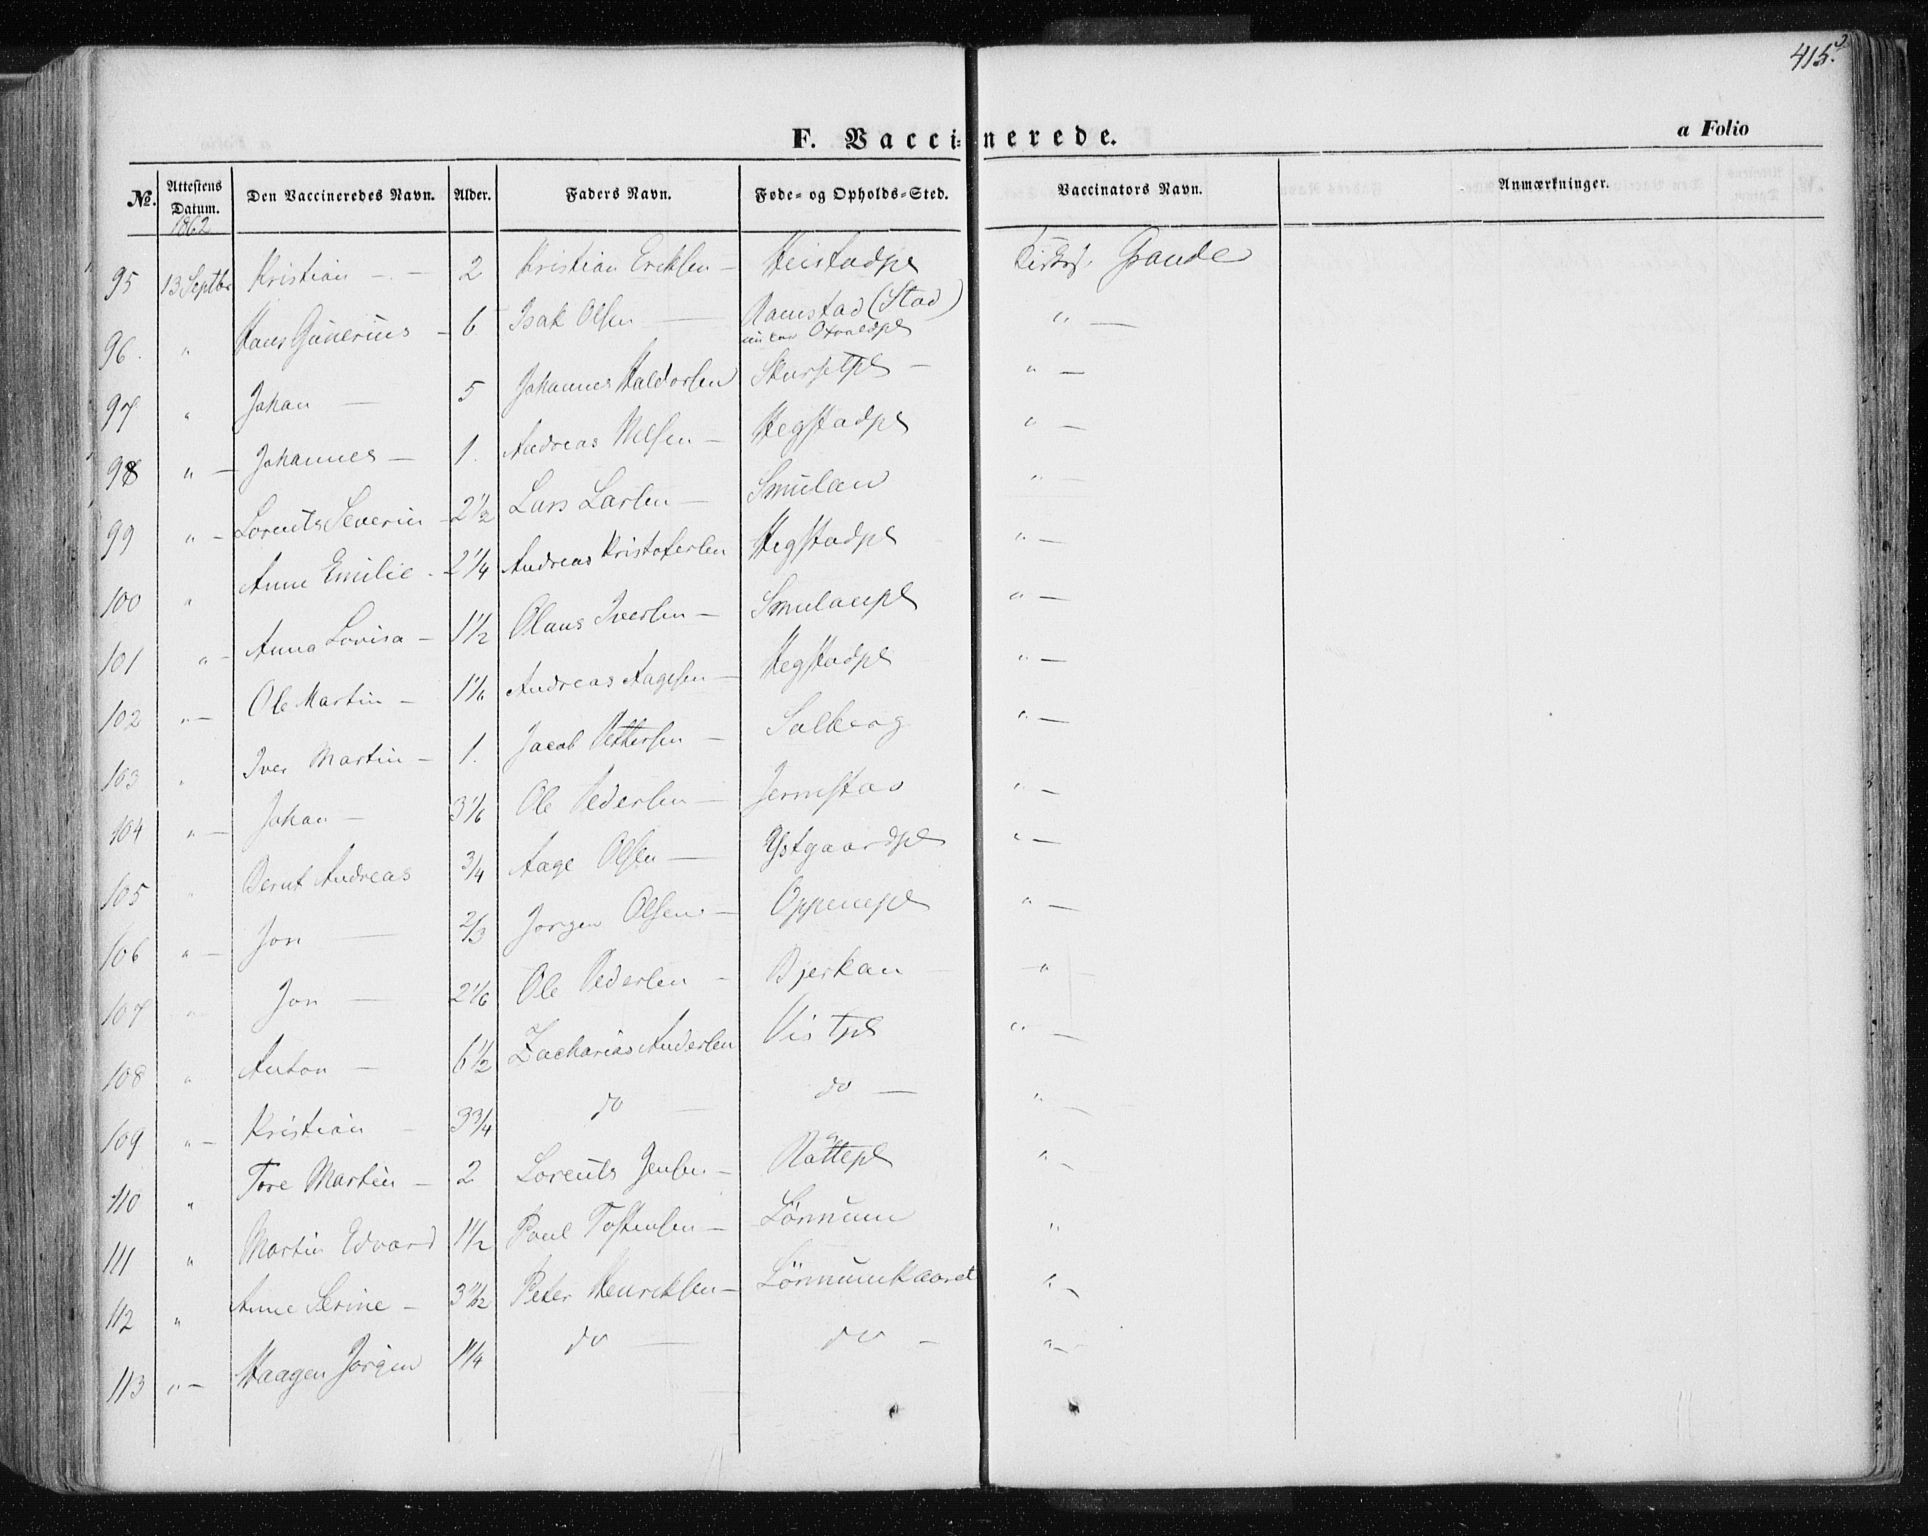 415.
F. Vaccinerede.
a Folio
No. Attestens Datum. Den Vaccineredes Navn. Alder. Faders Navn. Føde- og Opholds-Sted. Vaccinators Navn. Anmærkninger.
1862
95 13 Septbr Kristian — 2 Kristian Ericksen — Heistadpl Grande
96. " Hans Gunerius — 6 Isak Olsen — Ramstad (Stad) " —
97 " Johan — 5 Johannes Haldorsen Skursetpl — " —
98 " — Johannes — 1. Andreas Nilsen — Hegstadpl " —
99 " — Lorents Severin — 2½ Lars Larsen — Smulan " —
100 " Anne Emilie — 2¼ Andreas Kristofersen Hegstadpl " —
101 " — Anna Lovisa — 1½ Olaus Iversen — Smulanpl " —
102 " — Ole Martin — 1⅙ Andreas Aagesen — Hegstadpl " —
103 " Iver Martin — 1. Jacob Pettersen — Salberg " —
104 " — Johan — 3⅙ Ole Pedersen — Jermstad " —
105 " Bernt Andreas ¾ Aage Olsen — Ystgaardpl " —
106 " — Jon — ⅔ Jørgen Olsen — Oppempl " —
107 " Jon — 2⅙ Ole Pedersen — Bjerkan — " —
108 " Anton — 6½ Zacharias Andersen Vistpl " —
109 " — Kristian — 3¾ do — do — " —
110 " Tore Martin — 2 Lorents Jensen — Rottepl " —
111 " Martin Edvard 1½ Paul Tostensen — Lønnum "
112 " Anne Serine — Peter Henricksen — Lønnumkaaret " —
113 " — Haagen Jørgen 1¼ do — do — " —